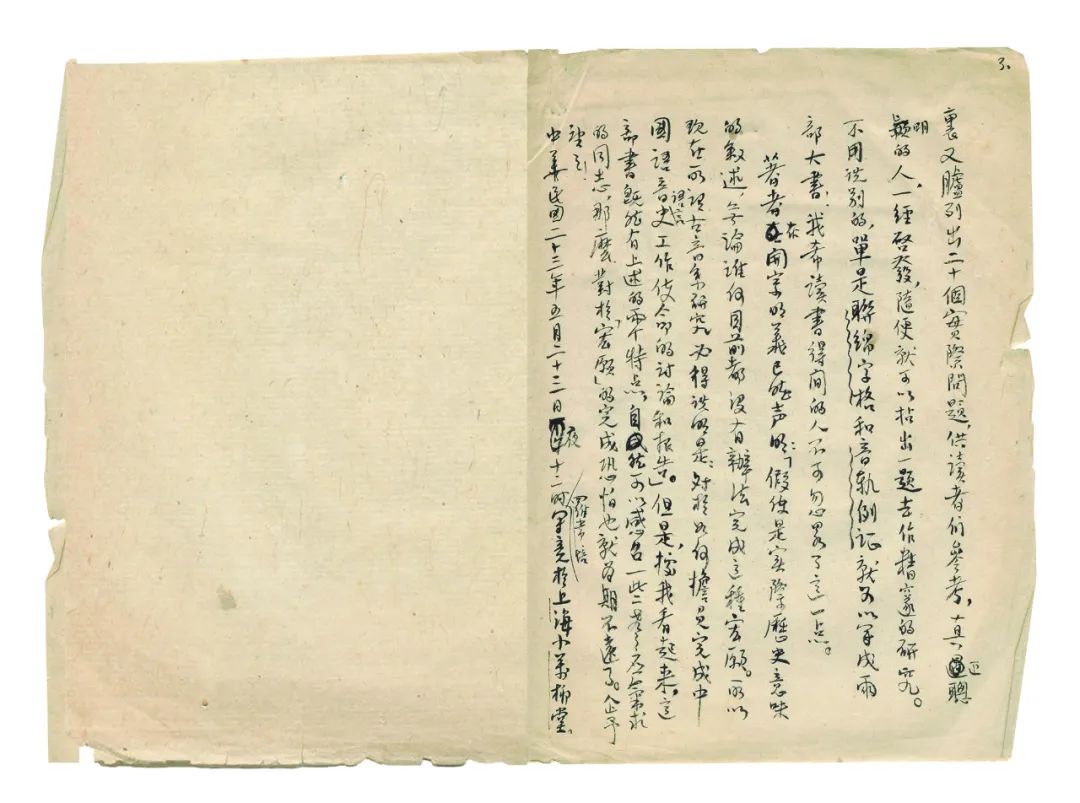 3.
裏又臚列出二十個實際問題,供讀者們參考,真正聰
明穎的人,一經啓發,隨便就可以拈出一題去作精邃的研究。
不用説别的,單是聯綿字格和音軌例証就可以寫成兩
部大書!我希讀書得間的人不可忽畧了這一點。
著者在開宗明義已然声明:「假使是實際歷史意味
的叙述,無論誰何目前都没有辦法完成這種宏願。所以
現在所謂古音系研究必得説明是:對於如何擔負完成中
國語言音史工作使命的討論和報告。」但是,據我看起來,這
部書既然有上述的兩个特点,自然可以感召一些声应氣求
的同志,那麽對於「宏願」的完成恐怕也就爲期不遠了。企予
望之!
羅常培
中華民國二十三年五月二十二日夜十二時寫竟於上海小萬柳堂.